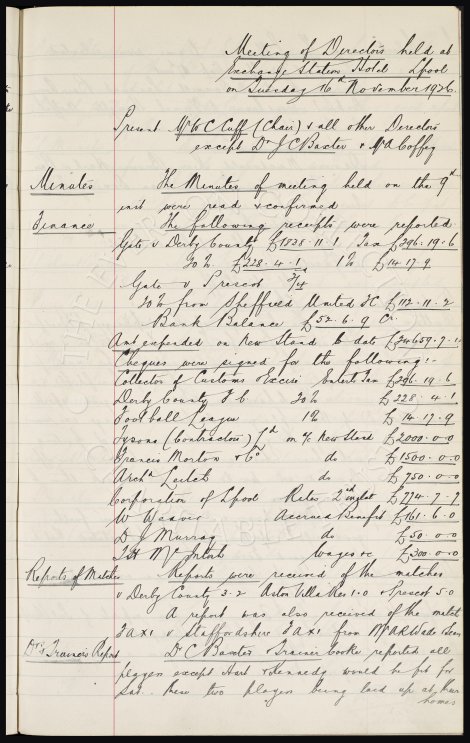 Meeting of Directors held at
Exchange Station Hotel L'pool
on Tuesday 16th November 1926.
Present Mr W C Cuff (Chair) & all other Directors
except Dr J C Baxter & Mr A Coffey
Minutes The Minutes of meeting held on the 9th
inst were read & confirmed
Finance The following receipts were reported
Gate v Derby County £1828.11.1 Tax £296.19.6
20% £228.4.1 1% £14.17.9
Gate v Prescot
20% from Sheffield United FC £112.11.2
Bank Balance £52.6.9 Cr.
Amt expended on New Stand to date
Cheques were signed for the following:-
Collector of Customs Excise Enterts Tax £296.19.6
Derby County F C 20% £228.4.1
Football League 1% £14.17.9
Tysons (Contractors) Ld on a/c New Stand £2000.0.0
Francis Morton & Co do £1500.0.0
Archd Leitch do £750.0.0
Corporation of L'pool Rates 2nd £774.7.7
W Accrued Benefit £161.6.0
D J Murray do £50.0.0
McIntosh Wages &c £300.0.0
Reports of Matches Reports were received of the matches
v Derby County 3-2 Aston Villa Res 1-0 & Prescot 5-0
A report was also received of the match
F A XI v Staffordshire F A XI from Mr A R Wade
Dr's & Trainer's Report Dr C Baxter & Trainer Cooke reported all
players except Hart & Kennedy would be fit for
Sat. these two players being laid up at their
homes